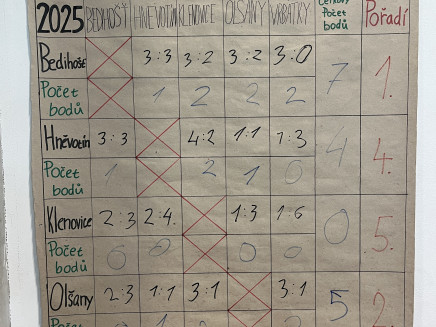 2025 BEDIHOŠŤ HNĚVOTÍN KLENOVICE OLŠANY VRBÁTKY Celkový Počet bodů Pořadí
Bedihošť 3:3 3:2 3:2 3:0 7 1.
Počet bodů 1 2 2 2
Hněvotín 3:3 4:2 1:1 1:3 4 4.
Počet bodů 1 2 1 0
Klenovice 2:3 2:4. 1:3 1:6 0 5.
Počet bodů 0 0 0 0
Olšany 2:3 1:1 3:1 3:1 5 2.
Počet